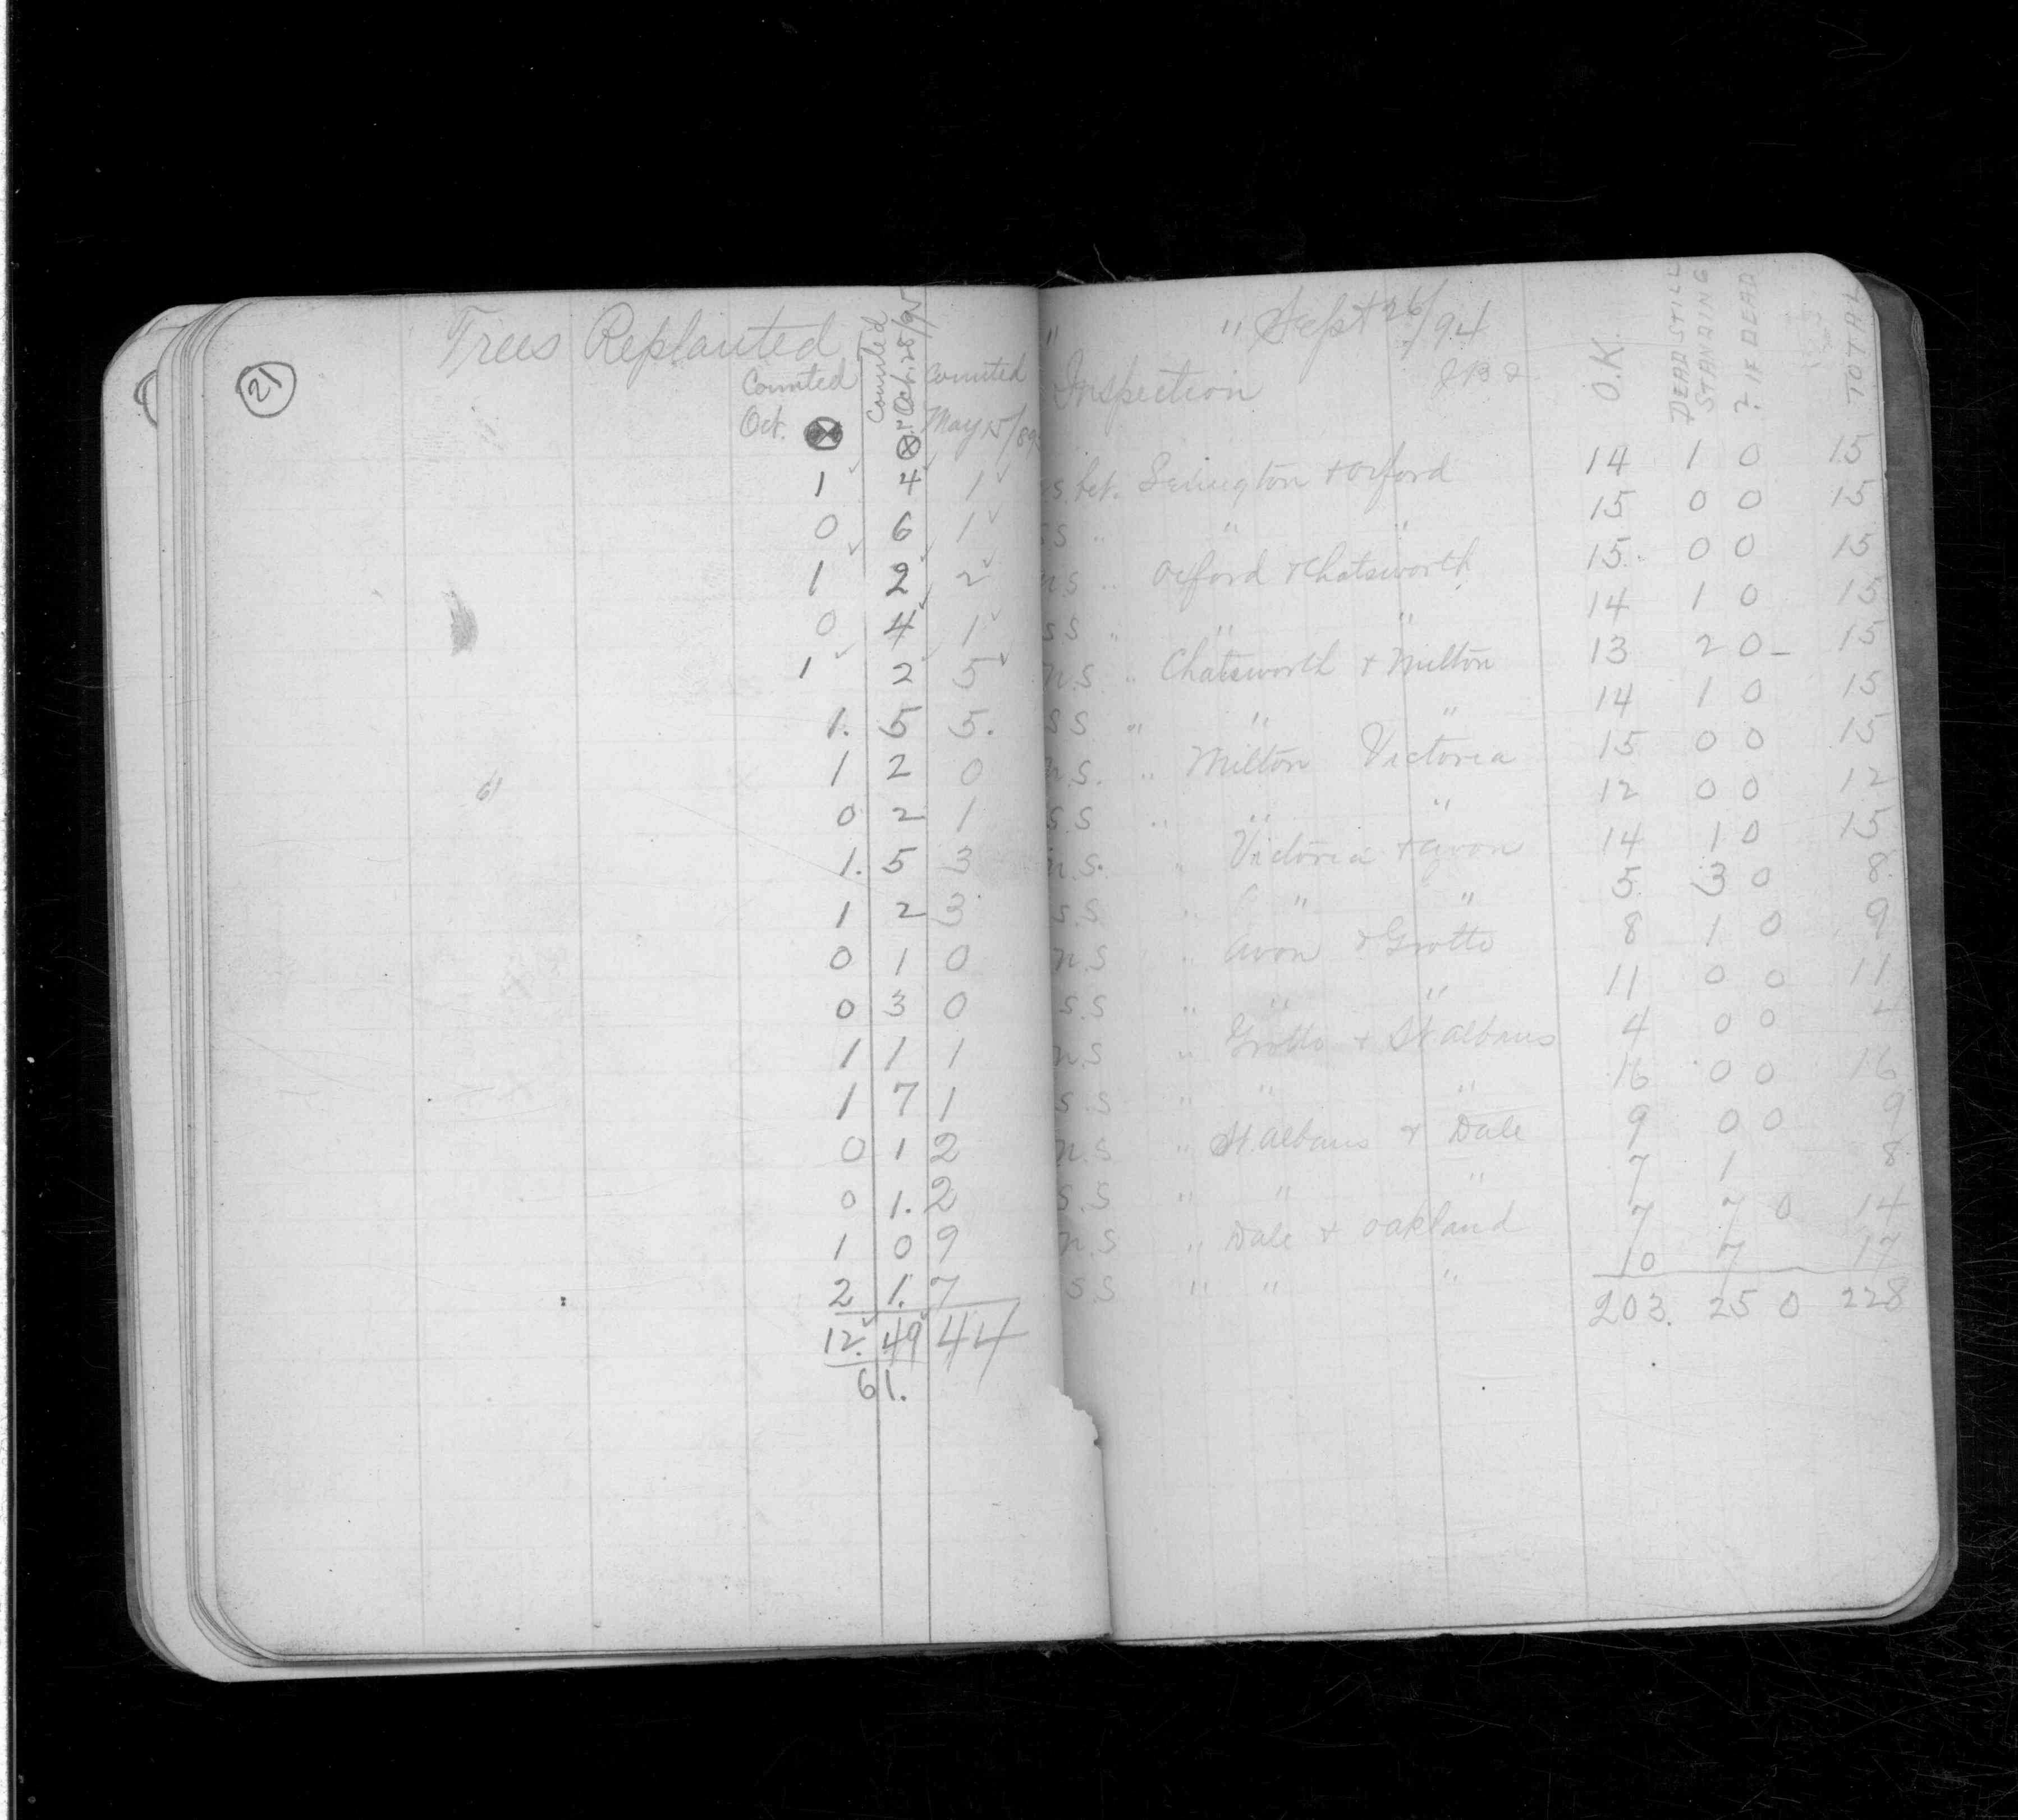 21
Trees Replanted
Counted Oct. 25/95
Counted
Counted
Oct.
May 15/
1 4 1
0 6 1
1 2 2
0 4 1
1 2 5
1. 5 5.
1 2 0
0 2 1
1. 5 3
1 2 3
0 1 0
0 3 0
1 1 1
1 7 1
0 1 2
0 1. 2
1 0 9
2 1. 7
12. 49 44
61.
61
" " Sept 26/94
Inspection
O.K. DEAD STILL STANDING ? IF DEAD TOTAL
s. bet. Lexington + Oxford 14 1 0 15
S S " " " 15 0 0 15
n.s " Oxford + Chatsworth 15. 0 0 15
s s " " " 14 1 0 15
n.s. " Chatsworth + Milton 13 2 0 – 15
s s " " " 14 1 0 15
n.s. " Milton Victoria 15 0 0 15
s.s " " " 12 0 0 12
n.s. " Victoria + Avon 14 1 0 15
s.s " " " 5. 3 0 8.
n.s " Avon + Grotto 8 1 0 9
s.s " " " 11 0 0 11
n.s " Grotto + St. Albans 4 0 0 4
s.s " " " 16 0 0 16
n.s " St. Albans + Dale 9 0 0 9
s.s " " " 7 1 8
n.s " Dale + Oakland 7 7 0 14
s.s " " " 10 7 17
203. 25 0 228